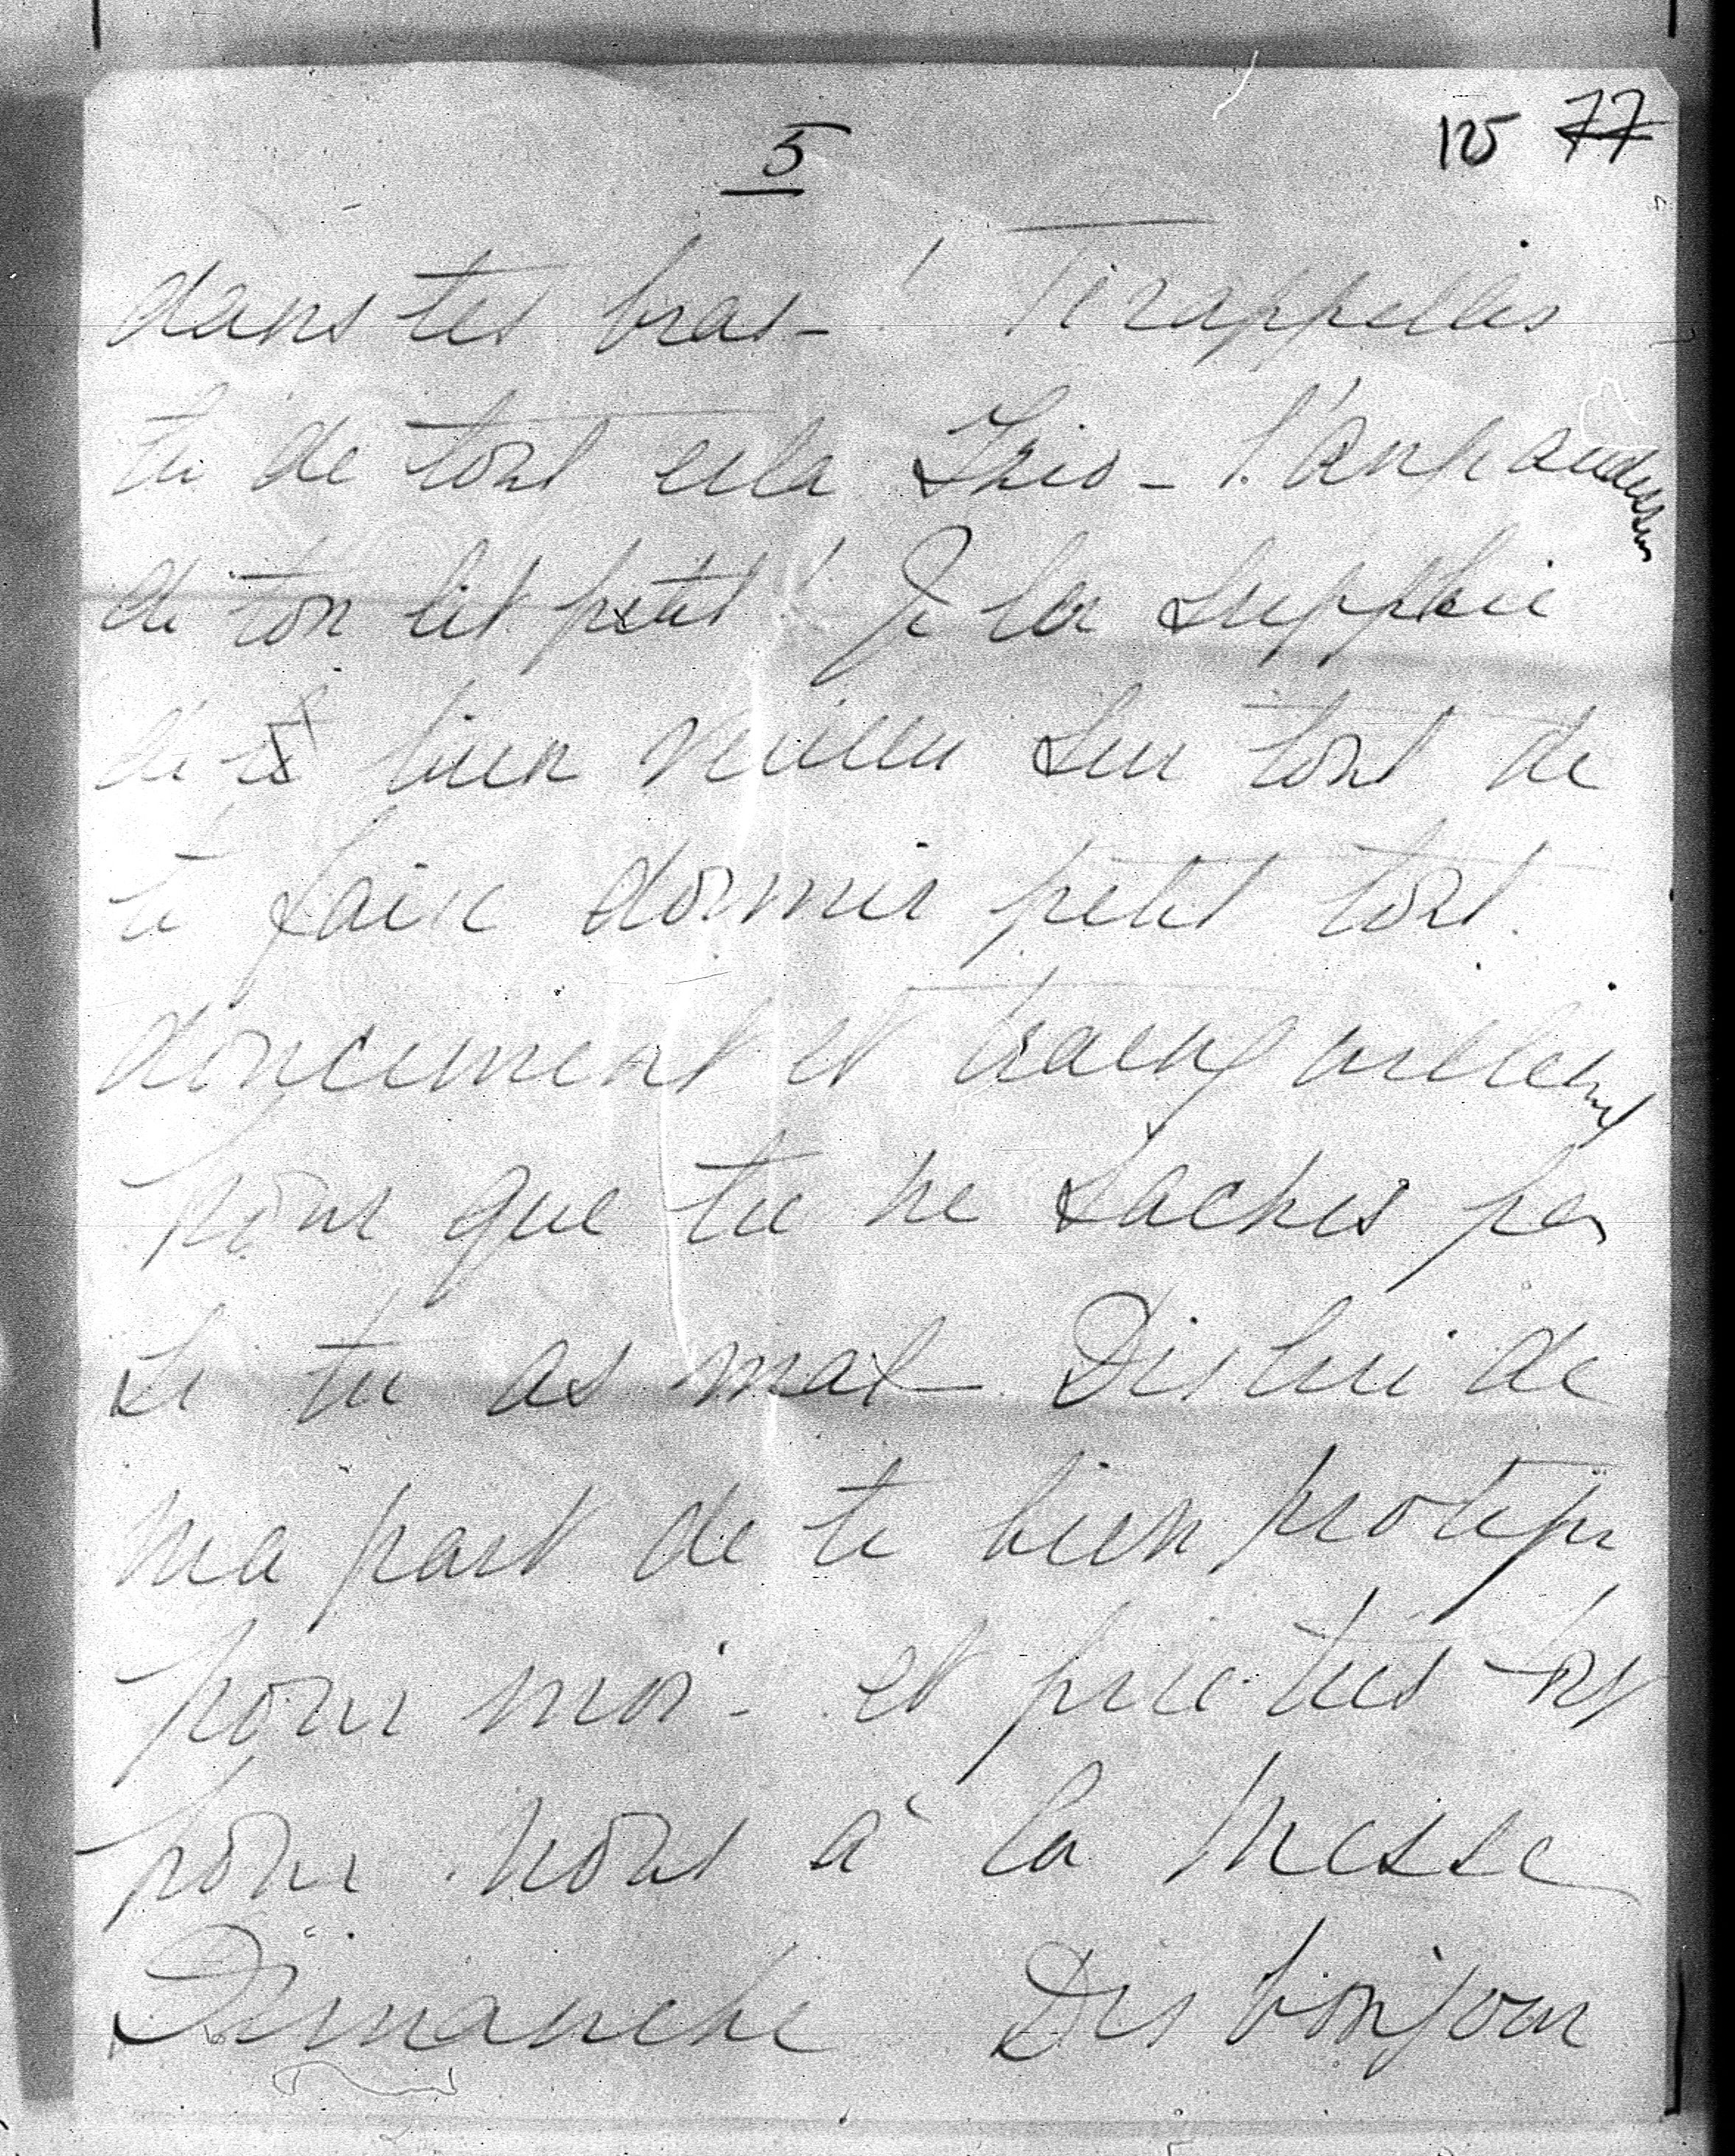 5
125 77
dans tes bras - ! Te rappelles
tu de tout cela - l'ange audessus
de ton lit petit ! Je la supplie
de bien veiller sur tout de
te faire dormir petit tout
doucement et tranquillement
pour que tu ne saches pas
si tu as mal - Dis lui de
ma part de te bien protéger
pour moi - et prie très fort
pour nous à la messe
Dimanche Dis bonjour